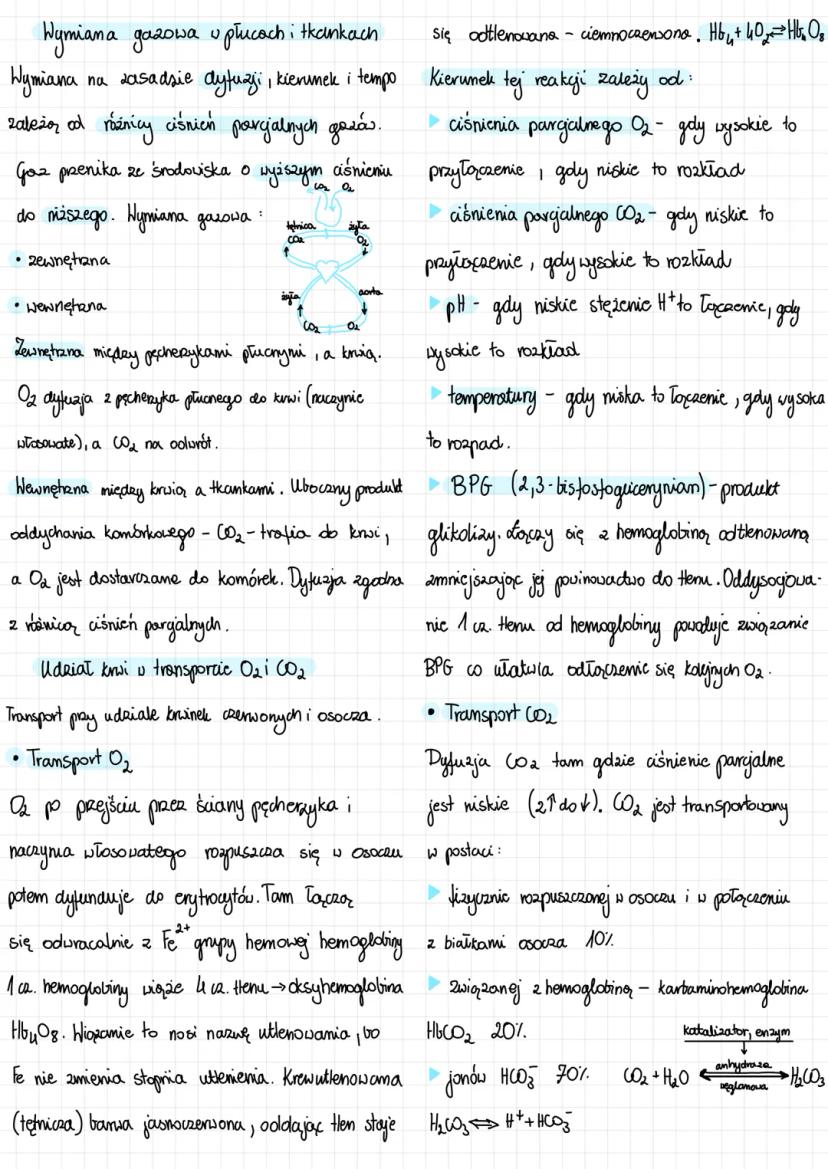 Wymiana gazowa w płucach i tkankach
Wymiana na zasadzie dyfuzji, kierunek i tempo
zależą od różnicy ciśnień parcjalnych gazów.
Gaz przenika ze środowiska o wyższym ciśnieniu
do niższego. Wymiana gazowa:
• zewnętrzna
• wewnętrzna
CO₂ O₂
tętnica żyła
CO₂ O₂
żyła aorta
CO₂ O₂
Zewnętrzna między pęcherzykami płucnymi, a krwią.
O₂ dyfuzja z pęcherzyka płucnego do krwi (naczynie
włosowate), a CO₂ na odwrót.
Wewnętrzna między krwią a tkankami. Uboczny produkt
oddychania komórkowego - CO₂ - trafia do krwi,
a O₂ jest dostarczane do komórek. Dyfuzja zgodna
z różnicą ciśnień parcjalnych.
Udział krwi w transporcie O₂ i CO₂
Transport przy udziale krwinek czerwonych i osocza.
• Transport O₂
O₂ po przejściu przez ściany pęcherzyka i
naczynia włosowatego rozpuszcza się w osoczu
potem dyfunduje do erytrocytów. Tam łączą
się odwracalnie z Fe²⁺ grupy hemowej hemoglobiny
1 cz. hemoglobiny wiąże 4 cz. tlenu → oksyhemoglobina
Hb₄O₈. Wiązanie to nosi nazwę utlenowania, bo
Fe nie zmienia stopnia utlenienia. Krew utlenowana
(tętnicza) barwa jasnoczerwona, oddając tlen staje
się odtlenowana - ciemnoczerwona. Hb₄ + 4O₂ ⇄ Hb₄O₈
Kierunek tej reakcji zależy od:
▶ ciśnienia parcjalnego O₂ - gdy wysokie to
przyłączenie, gdy niskie to rozkład
▶ ciśnienia parcjalnego CO₂ - gdy niskie to
przyłączenie, gdy wysokie to rozkład
▶ pH - gdy niskie stężenie H⁺ to łączenie, gdy
wysokie to rozkład
▶ temperatury - gdy niska to łączenie, gdy wysoka
to rozpad.
▶ BPG (2,3-bisfosfoglicerynian) - produkt
glikolizy. Łączy się z hemoglobiną odtlenowaną
zmniejszając jej powinowadwo do tlenu. Oddysocjowa-
nie 1 cz. tlenu od hemoglobiny powoduje związanie
BPG co ułatwia odłączenie się kolejnych O₂.
• Transport CO₂
Dyfuzja CO₂ tam gdzie ciśnienie parcjalne
jest niskie (z↑ do ↓). CO₂ jest transportowany
w postaci:
▶ fizycznie rozpuszczonej w osoczu i w połączeniu
z białkami osocza 10%
▶ związanej z hemoglobiną - karbaminohemoglobina
HbCO₂ 20%
▶ jonów HCO₃⁻ 70%
katalizator, enzym
anhydraza
CO₂ + H₂O ⟷ H₂CO₃
węglanowa
H₂CO₃ ⟺ H⁺ + HCO₃⁻